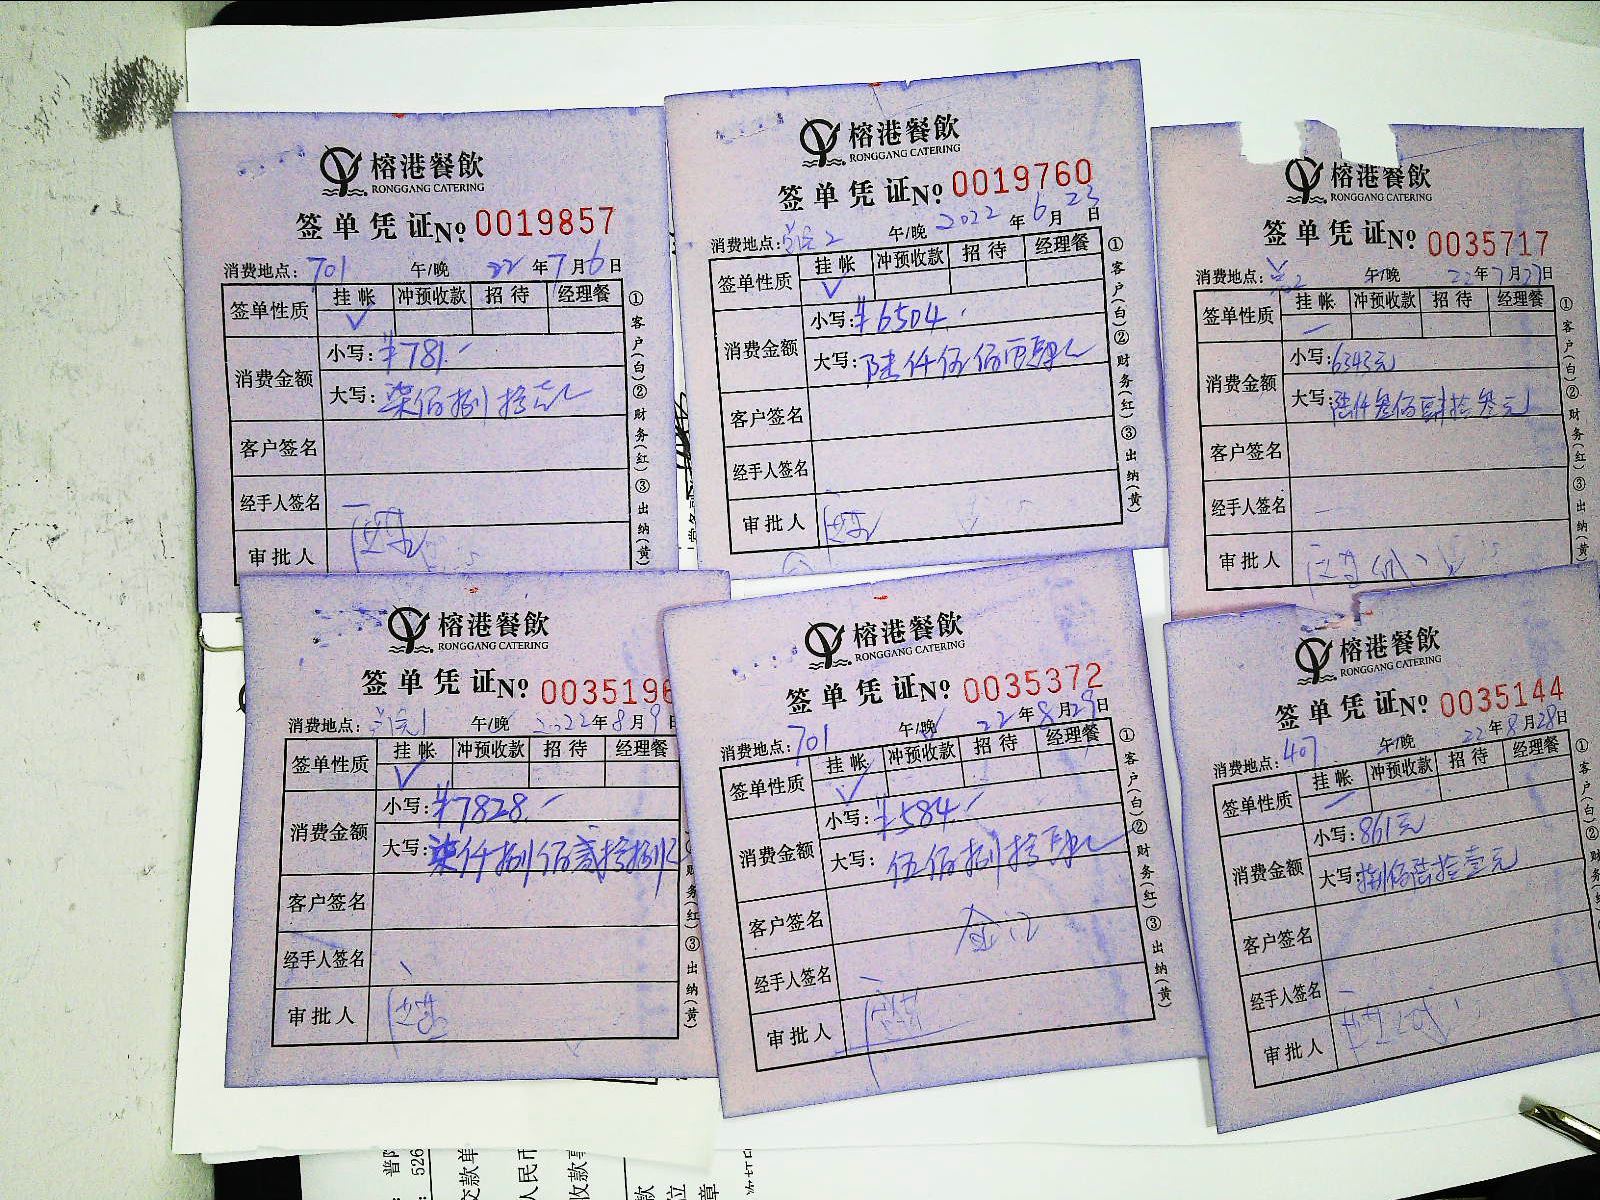 榕港餐飲
RONGGANG CATERING
签单凭证№ 0019857
消费地点: 701 午/晚 22年7月6日
签单性质 挂帐 冲预收款 招待 经理餐
✓
消费金额 小写: ¥781.-
大写: 柒佰捌拾壹元
客户签名
经手人签名
审批人
①客户(白)②财务(红)③出纳(黄)
榕港餐飲
RONGGANG CATERING
签单凭证№ 0019760
消费地点: 午/晚 2022年6月23日
签单性质 挂帐 冲预收款 招待 经理餐
✓
消费金额 小写: ¥6504.
大写: 陆仟伍佰零肆元
客户签名
经手人签名
审批人
①客户(白)②财务(红)③出纳(黄)
榕港餐飲
RONGGANG CATERING
签单凭证№ 0035717
消费地点: 午/晚 22年7月27日
签单性质 挂帐 冲预收款 招待 经理餐
消费金额 小写: 6343元
大写: 陆仟叁佰肆拾叁元
客户签名
经手人签名
审批人
①客户(白)②财务(红)③出纳(黄)
榕港餐飲
RONGGANG CATERING
签单凭证№ 0035196
消费地点: 午/晚 2022年8月9日
签单性质 挂帐 冲预收款 招待 经理餐
✓
消费金额 小写: ¥7828.-
大写: 柒仟捌佰贰拾捌元
客户签名
经手人签名
审批人
财务(红)③出纳(黄)
榕港餐飲
RONGGANG CATERING
签单凭证№ 0035372
消费地点: 701 午/晚 22年8月29日
签单性质 挂帐 冲预收款 招待 经理餐
✓
消费金额 小写: ¥584.-
大写: 伍佰捌拾肆元
客户签名
经手人签名
审批人
①客户(白)②财务(红)③出纳(黄)
榕港餐飲
RONGGANG CATERING
签单凭证№ 0035144
消费地点: 407 午/晚 22年8月28日
签单性质 挂帐 冲预收款 招待 经理餐
消费金额 小写: 861元
大写: 捌佰陆拾壹元
客户签名
经手人签名
审批人
①客户(白)②财务(红)
526
交款单
人民币
收款事